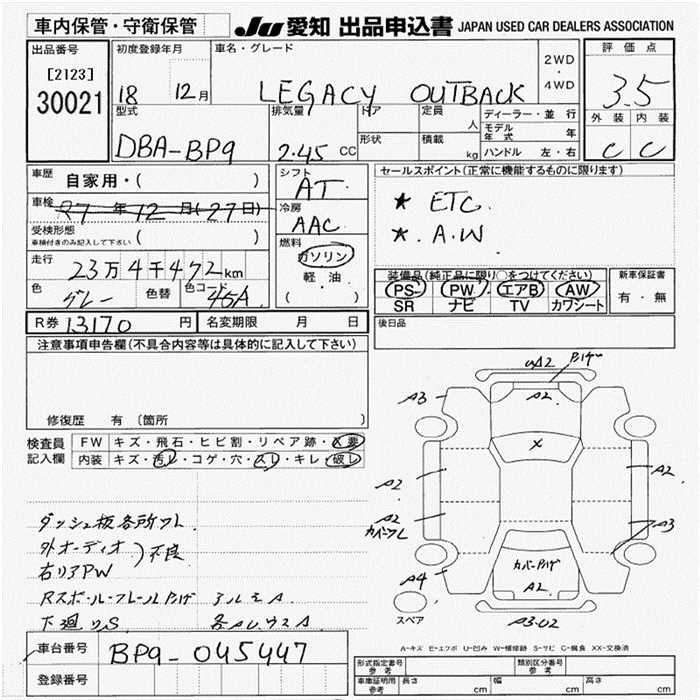 車内保管・守衛保管
JU 愛知 出品申込書 JAPAN USED CAR DEALERS ASSOCIATION
出品番号
[2123]
30021
初度登録年月
18 12月
車名・グレード
LEGACY OUTBACK
2WD
・
4WD
評価点
3.5
外装 内装
C C
型式
DBA-BP9
排気量
2.45 CC
ドア
形状
定員 人
積載 kg
ディーラー・並行
モデル年式 年
ハンドル 左・右
車歴 自家用・( )
車検 R7年12月(27日)
受検形態
車検付きのみ記入して下さい ( )
走行 23万4千472km
色 グレー 色替 色コード 45A
シフト AT
冷房 AAC
燃料
ガソリン
軽・油
( )
R券 13170 円 名変期限 月 日
セールスポイント(正常に機能するものに限ります)
★ ETC
★ A.W
装備品(純正品に限り○をつけてください)
PS PW エアB AW
SR ナビ TV カワシート
新車保証書
有・無
後日品
注意事項申告欄(不具合内容等は具体的に記入して下さい)
修復歴 有 〔箇所
検査員
記入欄
FW キズ・飛石・ヒビ割・リペア跡・X要
内装 キズ・汚レ・コゲ・穴・スレ・キレ・破レ
ダッシュ板各所ワレ
外オーディオ
右リアPW
)不良
下廻りS
A2
A3
A2
X
A2
A2
A2
A3
A4
A2
スペア
A-キズ E-エクボ U-凹み W-補修跡 S-サビ C-腐食 XX-交換済
車台番号 BP9-045447
登録番号
形式指定番号
参考
類別区分番号
参考
車庫証明用
参考
長さ cm 幅 cm 高さ cm